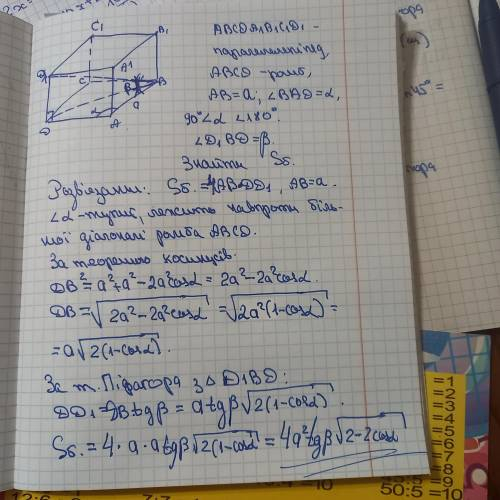 C1
B1
D1
A1
C
B
β
α
a
D
A
ABCDA1B1C1D1 -
паралелепіпед,
ABCD - ромб,
AB = a, ∠BAD = α,
90° < α < 180°.
∠D1BD = β.
Знайти Sб.
Розв'язання: Sб. = 4AB·DD1, AB = a.
∠α - тупий, лежить навпроти біль-
шої діагоналі ромба ABCD.
За теоремою косинусів:
DB² = a² + a² - 2a²cosα = 2a² - 2a²cosα.
DB = √(2a² - 2a²cosα) = √(2a²(1-cosα)) =
= a√(2(1-cosα)).
За т. Піфагора з Δ D1BD:
DD1 = DB tgβ = a tgβ √(2(1-cosα)).
Sб. = 4 · a · a tgβ √(2(1-cosα)) = 4a² tgβ √(2-2cosα)
ора
45° =
ора
=1
=2
=3
=4
=5
=6
=7
=8
=9
50:5 =10